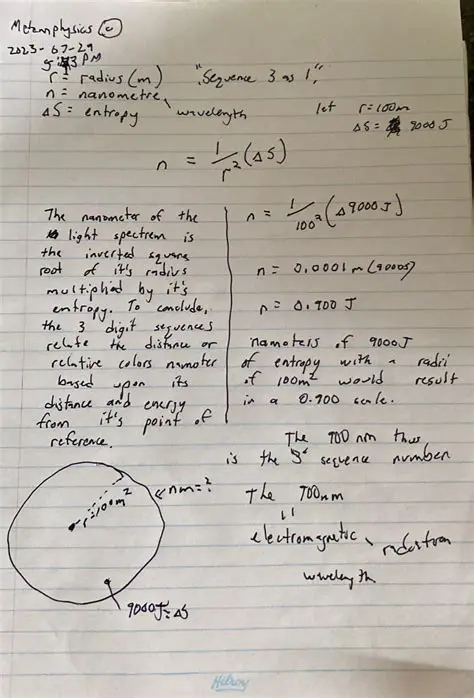 Metanphysics ©
2023-07-29
PM
r = radius (m) "Sequence 3 as 1".
n = nanometre, wavelength let r=100m
ΔS = entropy ΔS = 9000J
n = 1/r² (ΔS)
The nanometer of the
light spectrem is
the inverted square
root of it's radius
multiplied by it's
entropy. To conclude,
the 3 digit sequences
relate the distance or
relative colors namoter
based upon its
distance and energy
from it's point of
reference.
n = 1/100² (Δ9000J)
n = 0.0001m (9000J)
n = 0.900 J
namoters of 9000J
of entropy with a radii
of 100m² would result
in a 0.900 scale.
The 900 nm thus
is the 3' sequence nrumber
The 700nm
electromagnetic
wavelength
r=100m²
nm=?
9000J=ΔS
Hilroy